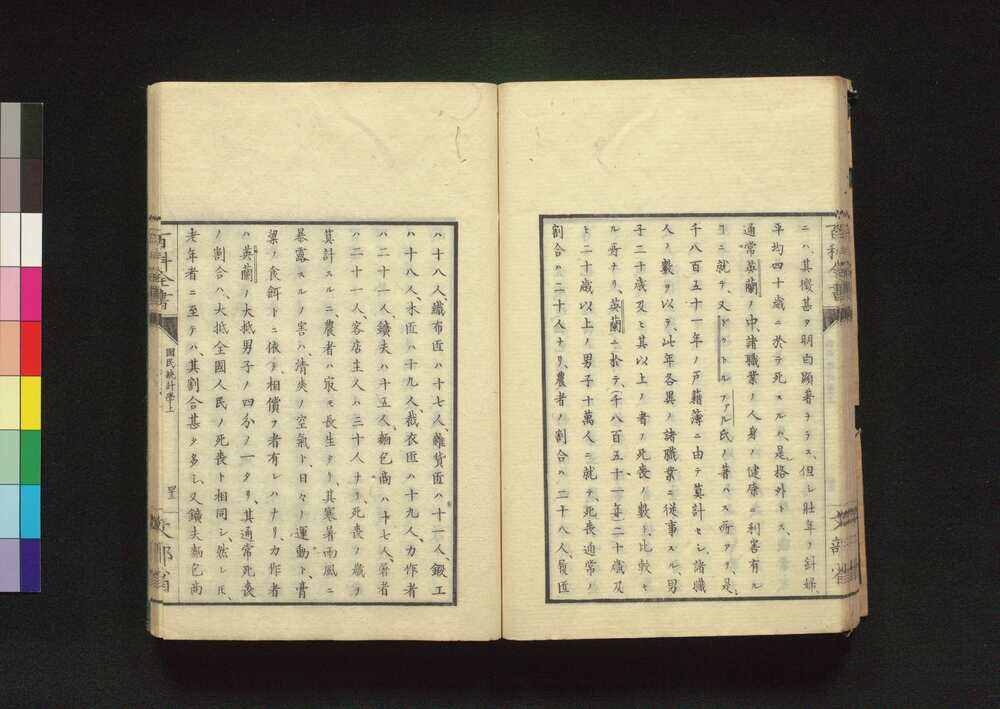 ニハ、其徴甚タ明白顯著ナラス、但シ壯年ノ斜婦、
平均四十歳ニ於テ死スルハ、是格外トス、
通常英蘭ノ中、諸職業ノ人身ノ健康ニ利害有ル
ヿニ就テ、又ドクトルファル氏ノ著ハス所アリ、是、
千八百五十一年ノ戸籍簿ニ由テ莫計セシ、諸職
人ノ數ヲ以テ、此年各異ノ諸職業ニ従事スル、男
子二十歳及ヒ其以上ノ者ノ死喪ノ數ト、比較セ
ル者ナリ、英蘭ニ於テ、千八百五十一年、二十歳及
ヒ二十歳以上ノ男子十萬人ニ就テ、死喪通常ノ
割合ハ二十人ナリ、農者ノ割合ハ二十八人、履匠
ハ十八人、織布匠ハ十七人、雜貨匠ハ十一人、鍛工
ハ十八人、木匠ハ十九人、裁衣匠ハ十九人、力作者
ハ二十一人、鑛夫ハ十五人、麵包商ハ十七人、屠者
ハ二十一人、客店主人ハ三十人ナリ、死喪ノ歳ヲ
莫計スルニ、農者ハ㝡モ長生ナリ、其寒暑雨風ニ
暴露スルノ害ハ、清爽ノ空氣ト、日々ノ運動ト、膏
粱ノ食餌トニ依テ、相償フ者有レハナリ、力作者
ハ英蘭ノ大抵男子ノ四分ノ一タリ、其通常死喪
ノ割合ハ、大抵全國人民ノ死喪ト相同シ、然レ𪜈、
老年者ニ至テハ、其割合甚タ多シ、又鑛夫麵包商
百科全書
國民統計學上
文部省